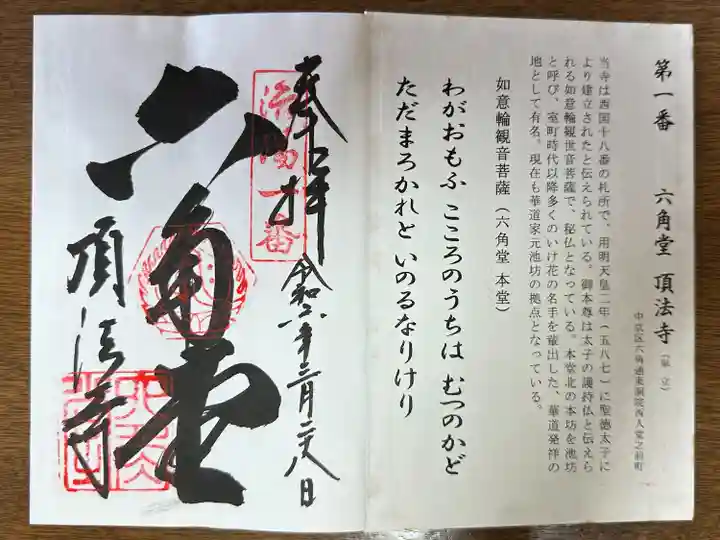 第一番 六角堂 頂法寺（単立）
中京区六角通東洞院西入堂之前町
当寺は西国十八番の札所で、用明天皇二年（五八七）に聖徳太子に
より建立されたと伝えられている。御本尊は太子の護持仏と伝えら
れる如意輪観世音菩薩で、秘仏となっている。本堂北の本坊を池坊
と呼び、室町時代以降多くのいけ花の名手を輩出した、華道発祥の
地として有名。現在も華道家元池坊の拠点となっている。
如意輪観音菩薩（六角堂 本堂）
わがおもふ こころのうちは むつのかど
ただまろかれと いのるなりけり
奉拝
洛陽一番
令和六年二月二十八日
六角堂
頂法寺